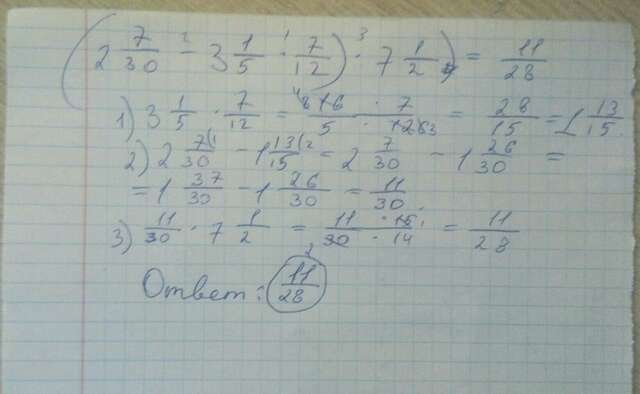 (2 7/30 - 3 1/5 · 7/12) · 7 1/2 = 11/28
1) 3 1/5 · 7/12 = 16 · 7 / 5 · 12 3 = 28/15 = 1 13/15.
2) 2 7/30 - 1 13/15 = 2 7/30 - 1 26/30 =
= 1 37/30 - 1 26/30 = 11/30.
3) 11/30 · 7 1/2 = 11 · 15 / 30 · 14 = 11/28
Ответ: 11/28